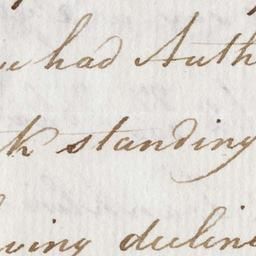 had Auth
k standing
ving decline